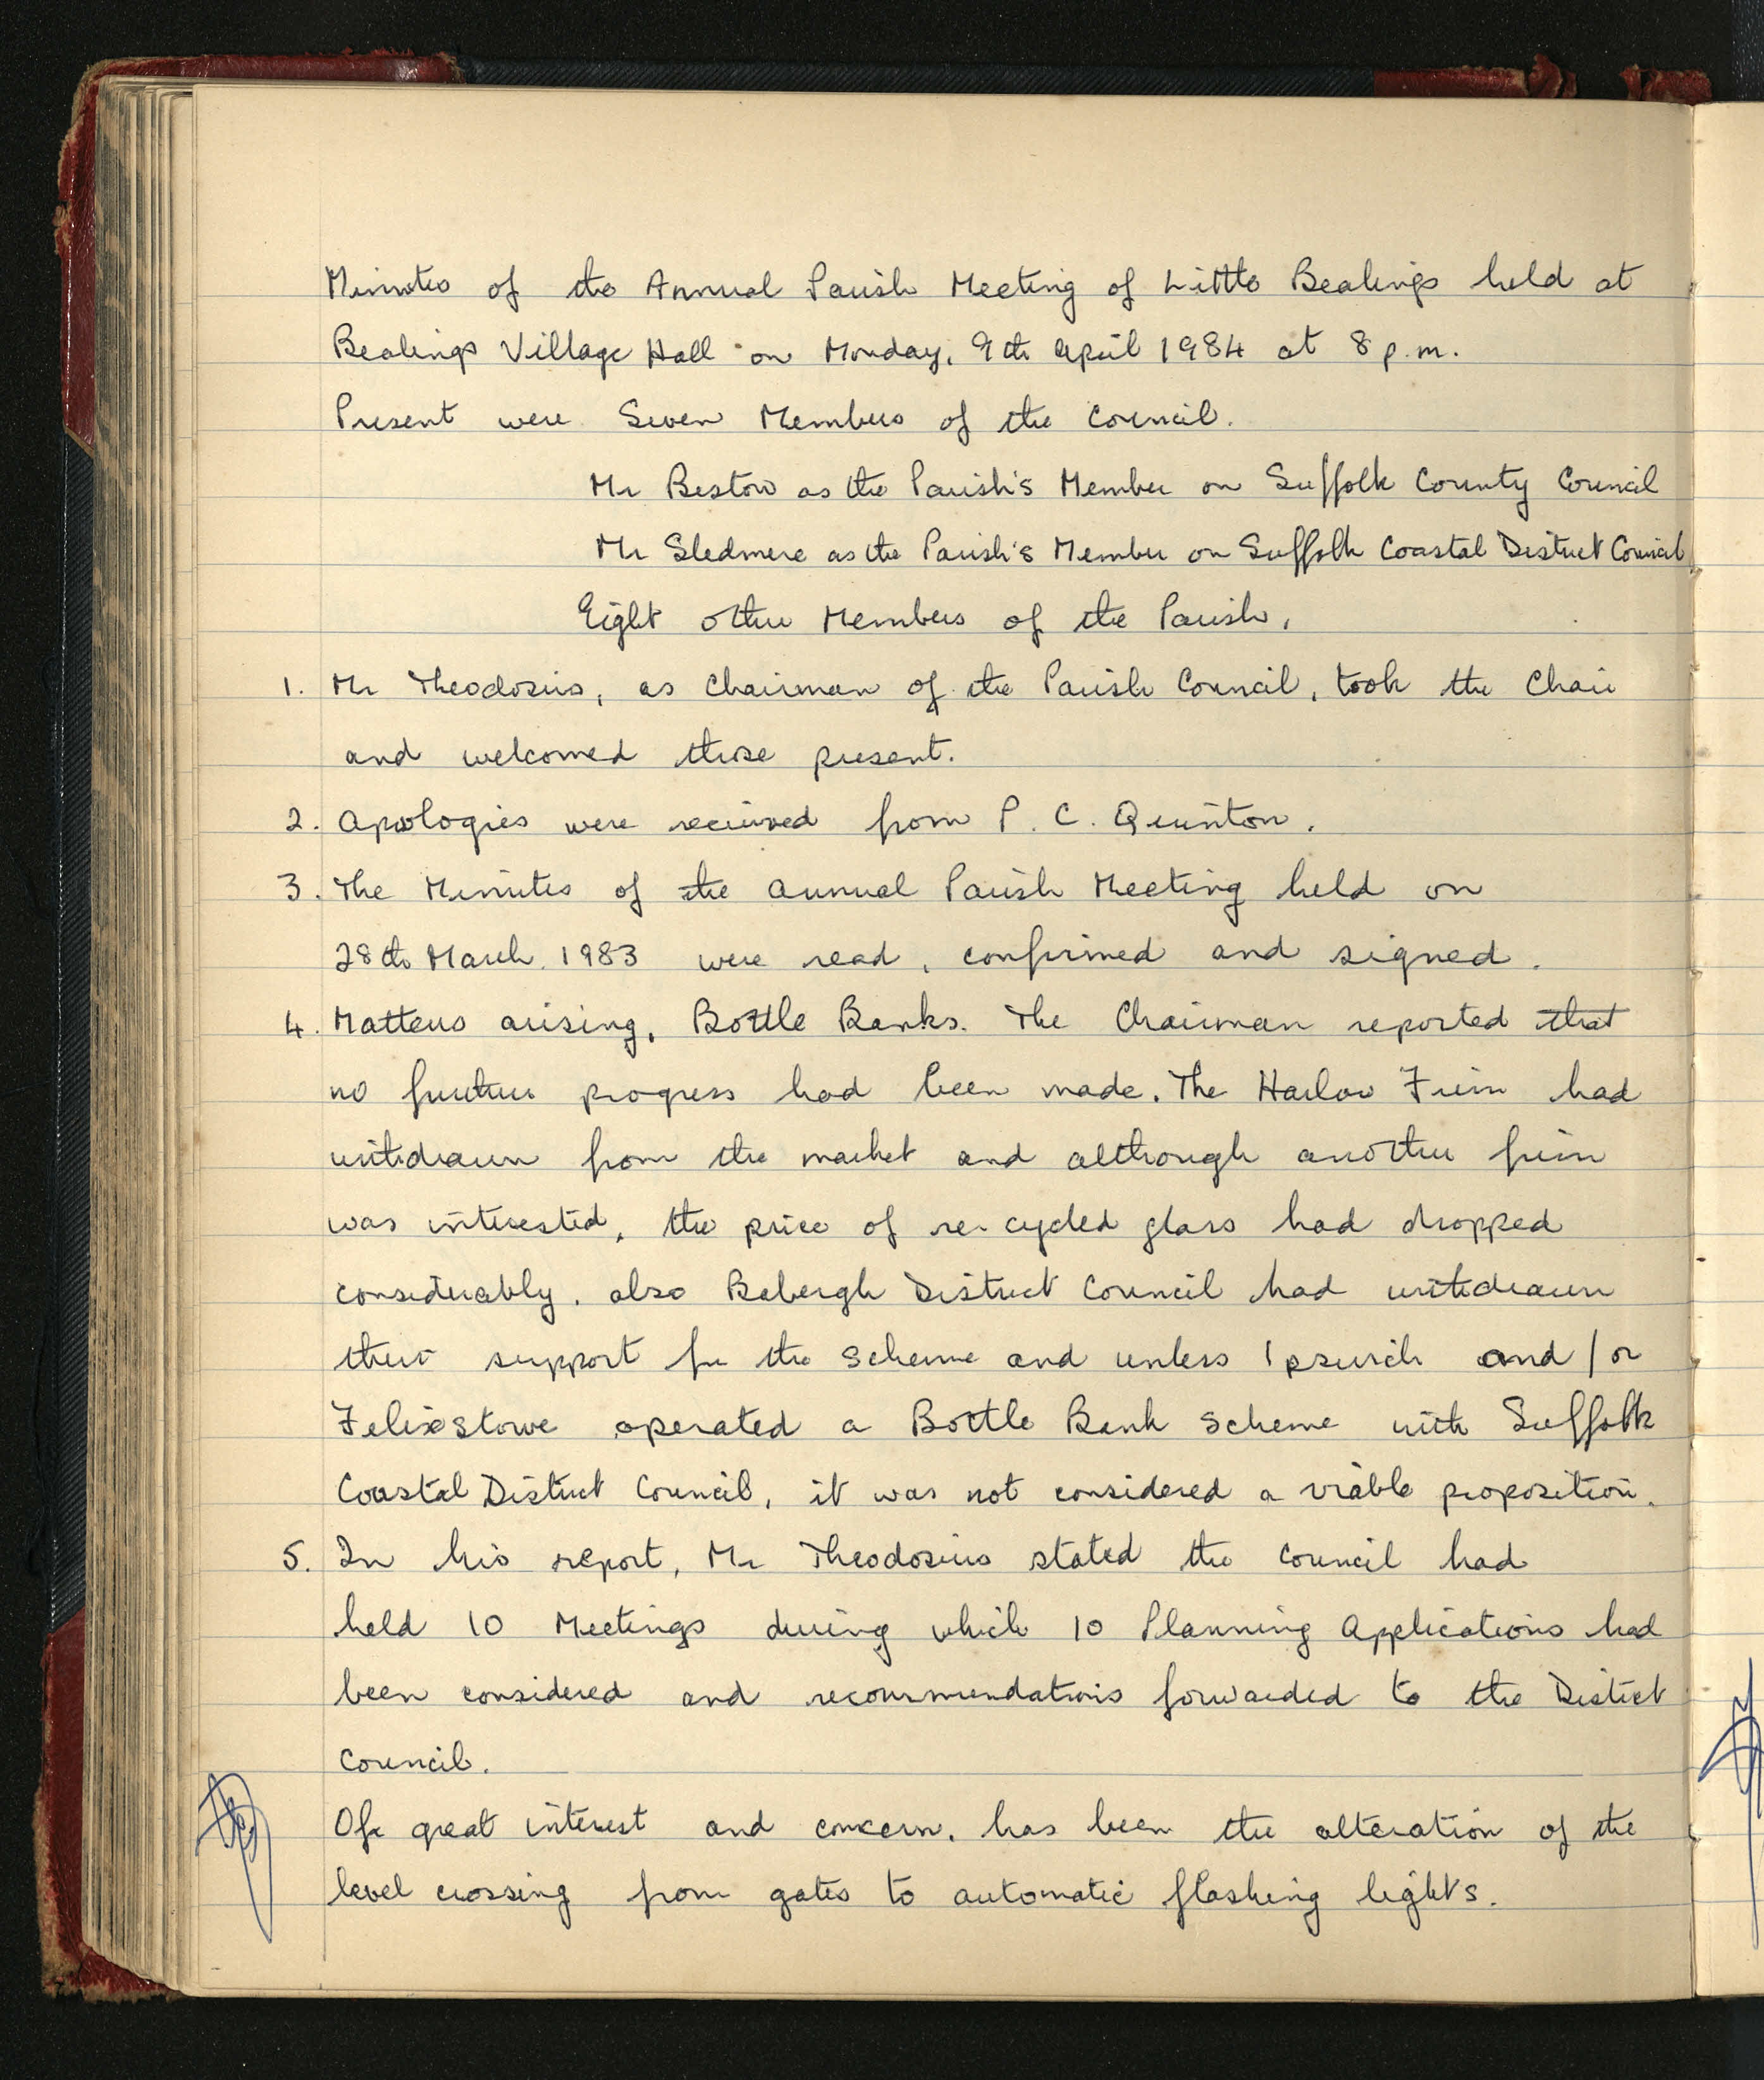 Minutes of the Annual Parish Meeting of Little Bealings held at
Bealings Village Hall on Monday, 9th April 1984 at 8 p.m.
Present were Seven Members of the Council.
Mr Bestow as the Parish's Member on Suffolk County Council
Mr Sledmere as the Parish's Member on Suffolk Coastal District Council
Eight other Members of the Parish.
1. Mr Theodosius, as Chairman of the Parish Council, took the Chair
and welcomed those present.
2. Apologies were received from P. C. Quinton.
3. The Minutes of the Annual Parish Meeting held on
28th March 1983 were read, confirmed and signed.
4. Matters arising, Bottle Banks. The Chairman reported that
no further progress had been made. The Harlow Firm had
withdrawn from the market and although another firm
was interested, the price of re-cycled glass had dropped
considerably. also Babergh District Council had withdrawn
their support for the Scheme and unless Ipswich and/or
Felixstowe operated a Bottle Bank Scheme with Suffolk
Coastal District Council, it was not considered a viable proposition.
5. In his report, Mr Theodosius stated the Council had
held 10 Meetings during which 10 Planning Applications had
been considered and recommendations forwarded to the District
Council.
Of great interest and concern, has been the alteration of the
level crossing from gates to automatic flashing lights.